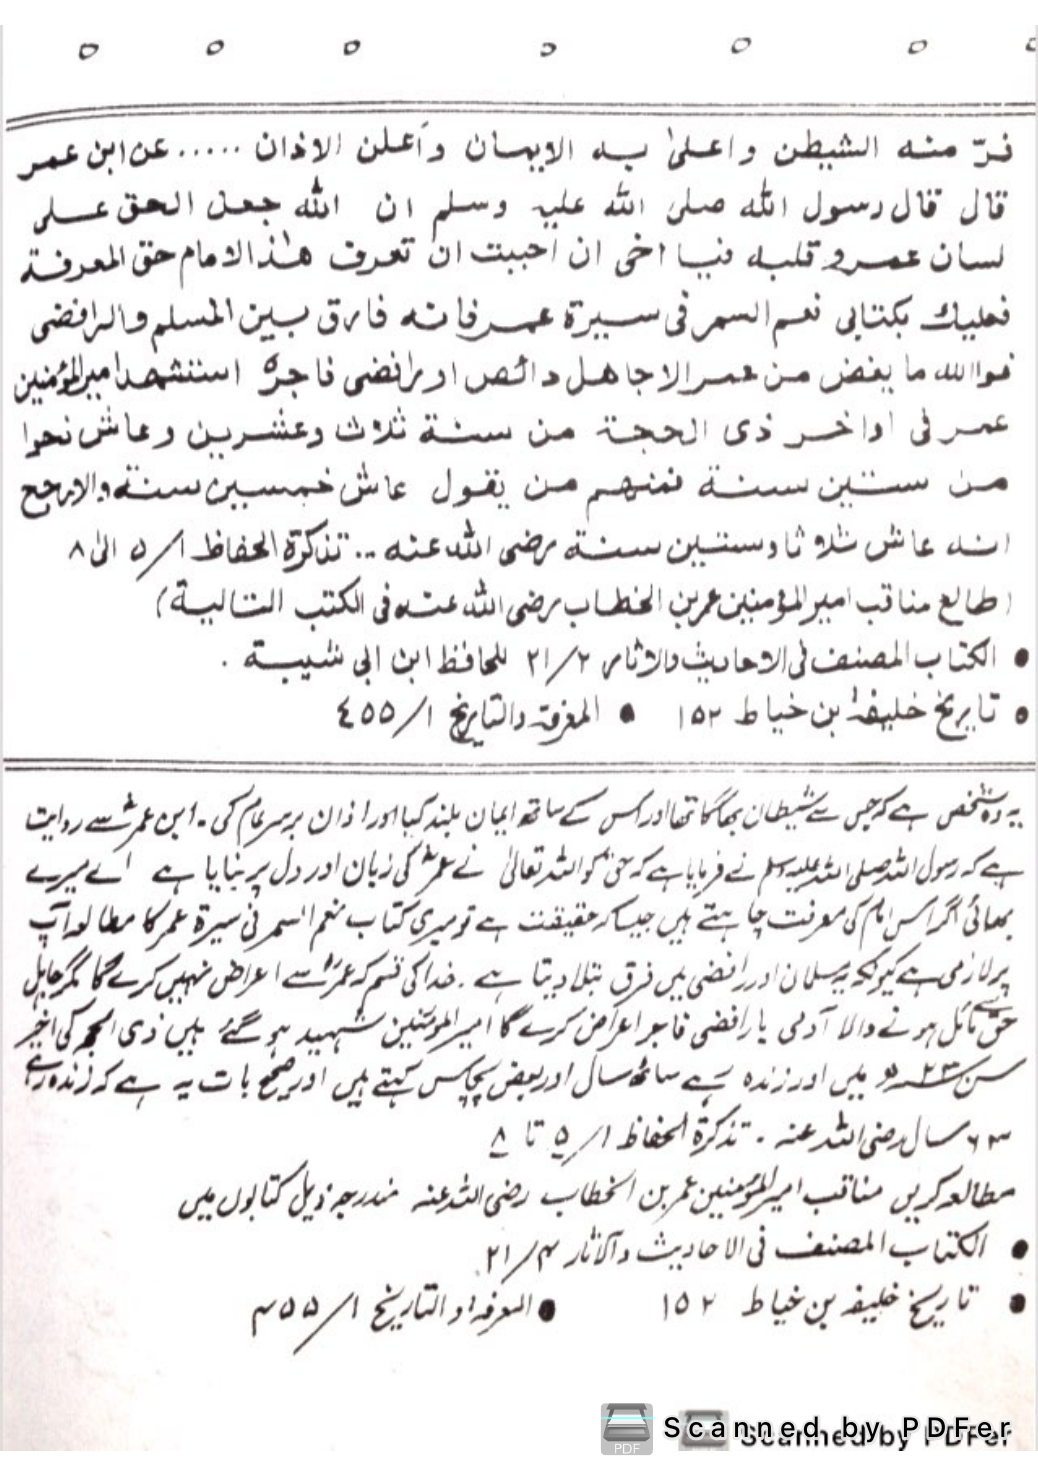 فرّ منه الشيطن واعلىٰ به الايمان وأعلن الاذان ..... عن ابن عمر
قال قال رسول الله صلى الله عليه وسلم ان الله جعل الحق على
لسان عمر و قلبه فيا اخى ان احببت ان تعرف هٰذا الامام حق المعرفة
فعليك بكتابى نعم السمر فى سيرة عمر فانه فارق بين المسلم والرافضى
فوالله ما يغض من عمر الاجاهل دائص اورافضى فاجرة استشهد اميرالمؤمنين
عمر فى اواخر ذى الحجة من سنة ثلاث وعشرين وعاش نحوا
من ستين سنة فمنهم من يقول عاش خمسين سنة والارجح
انه عاش ثلاثا وستين سنة رضى الله عنه .. تذكرة الحفاظ ١/٥ الى ٨
(طالع مناقب امير المؤمنين عمر بن الخطاب رضى الله عنه فى الكتب التالية)
● الكتاب المصنف فى الاحاديث والاثار ٢١/٢ للحافظ ابن ابى شيبة .
● تاريخ خليفة بن خياط ١٥٢ ● المعرفة والتاريخ ١/٤٥٥
یہ وہ شخص ہے کہ جس سے شیطان بھاگا تھا اور اس کے ساتھ ایمان بلند کیا اور اذان برسرِعام کی۔ ابن عمرؓ سے روایت
ہے کہ رسول اللہ صلی اللہ علیہ وسلم نے فرمایا ہے کہ حق کو اللہ تعالیٰ نے عمرؓ کی زبان اور دل پر بنایا ہے اے میرے
بھائی اگر اس امام کی معرفت چاہتے ہیں جیسا کہ حقیقت ہے تو میری کتاب نعم السمر فی سیرۃ عمر کا مطالعہ آپ
پر لازمی ہے کیونکہ یہ مسلمان اور رافضی میں فرق بتلا دیتا ہے ۔ خدا کی قسم کہ عمرؓ سے اعراض نہیں کرے گا مگر جاہل
حق سے مائل ہونے والا آدمی یا رافضی فاجر اعراض کرے گا امیرالمؤمنین شہید ہو گئے ہیں ذی الحجہ کی اخیر
سن ۲۳ھ میں اور زندہ رہے ساٹھ سال اور بعض پچاس کہتے ہیں اور صحیح بات یہ ہے کہ زندہ رہے
۶۳ سال رضی اللہ عنہ ۔ تذکرۃ الحفاظ ۱/۵ تا ۸
مطالعہ کریں مناقب امیرالمؤمنین عمر بن الخطاب رضی اللہ عنہ مندرجہ ذیل کتابوں میں
● الکتاب المصنف فی الاحادیث والآثار ۲۱/۴
● تاریخ خلیفہ بن خیاط ۱۵۲ ● المعرفۃ و التاریخ ۱/۴۵۵
Scanned by PDFer
Scanned by PDFer
PDF